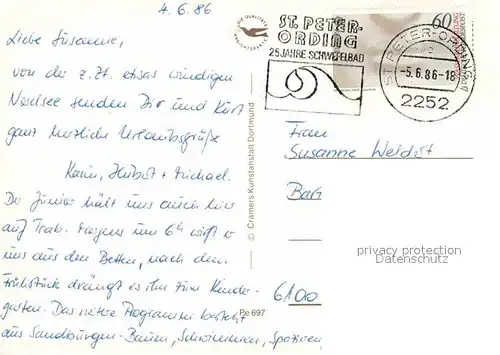 4.6.86
Liebe Susanne,
von der z. Zt. etwas windigen
Nordsee senden Dir und Kurt
ganz herzliche Urlaubsgrüße
Karin, Hubst + Michael.
Der Junior hält uns auch hier
auf Trab. Morgens um 6h wirft er
uns aus den Betten, nach dem
Frühstück drängt es ihn zum Kinder-
garten. Das weitere Programm besteht
aus Sandburgen-Bauen, Schwimmen, Spazieren
© Cramers Kunstanstalt Dortmund
Pe 697
ST. PETER-
ORDING
25 JAHRE SCHWEFELBAD
60
ST PETER-ORDING
-5.6.86-18
2252
Frau
Susanne
6100
privacy protection
Datenschutz